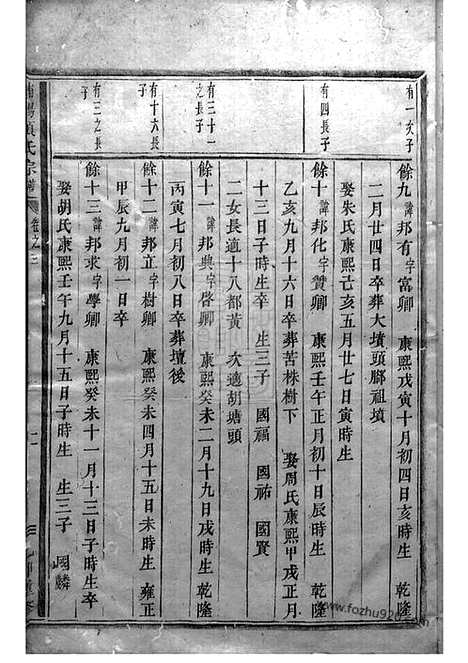 有一次子
餘九諱邦有字富卿 康熙戊寅十月初四日亥時生 乾隆
二月廿四日卒葬大墳頭腳祖墳
娶朱氏康熙己亥五月廿七日寅時生
有四長子
餘十諱邦化字贊卿 康熙壬午正月初十日辰時生 乾隆
乙亥九月十六日卒葬苦株樹下 娶周氏康熙甲戌正月
十三日子時生卒 生三子 國福 國祐 國賢
二女長適十八都黃 次適胡塘頭
有三十一之長子
餘十一諱邦典字啓卿 康熙癸未二月十九日戌時生 乾隆
丙寅七月初八日卒葬壇後
有十六長子
餘十二諱邦立字樹卿 康熙癸未四月十五日未時生 雍正
甲辰九月初一日卒
有三之長子
餘十三諱邦求字學卿 康熙癸未十一月十三日子時生卒
娶胡氏康熙壬午九月十五日子時生 生三子 國麟
氏宗譜 卷之三
www.fozhu920.com